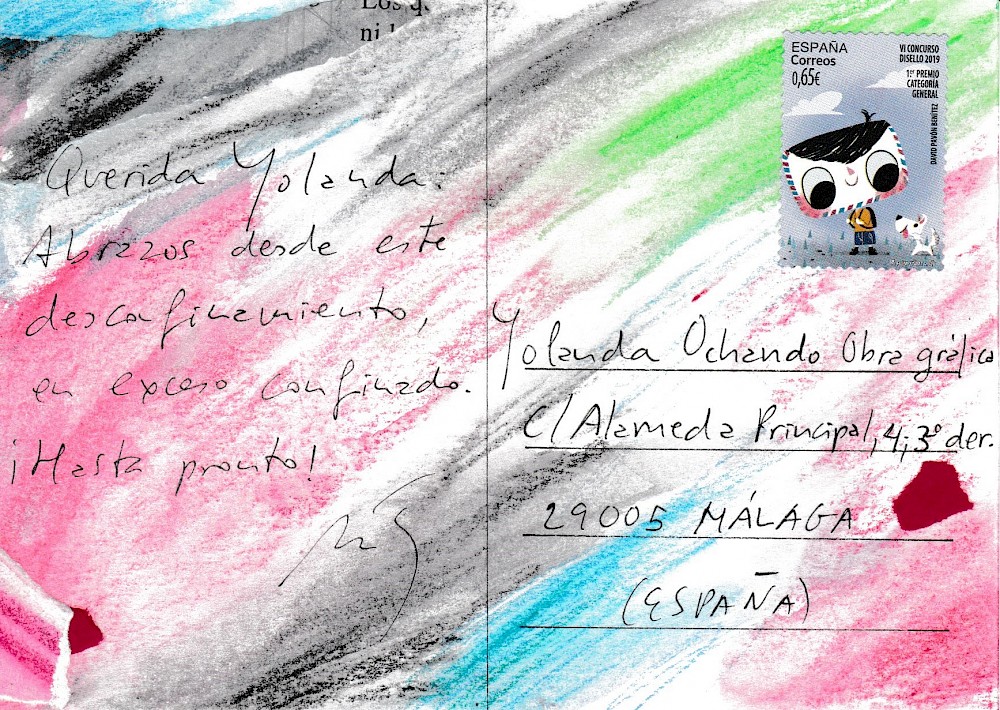 Los q
ni l
ESPAÑA
Correos
0,65€
VI CONCURSO
DISELLO 2019
1.er PREMIO
CATEGORÍA
GENERAL
DAVID PAVÓN BENÍTEZ
Querida Yolanda:
Abrazos desde este
desconfinamiento,
en exceso confinado.
¡Hasta pronto!
Yolanda Ochando Obra gráfica
C/ Alameda Principal, 4, 3º der.
29005 MÁLAGA
(ESPAÑA)